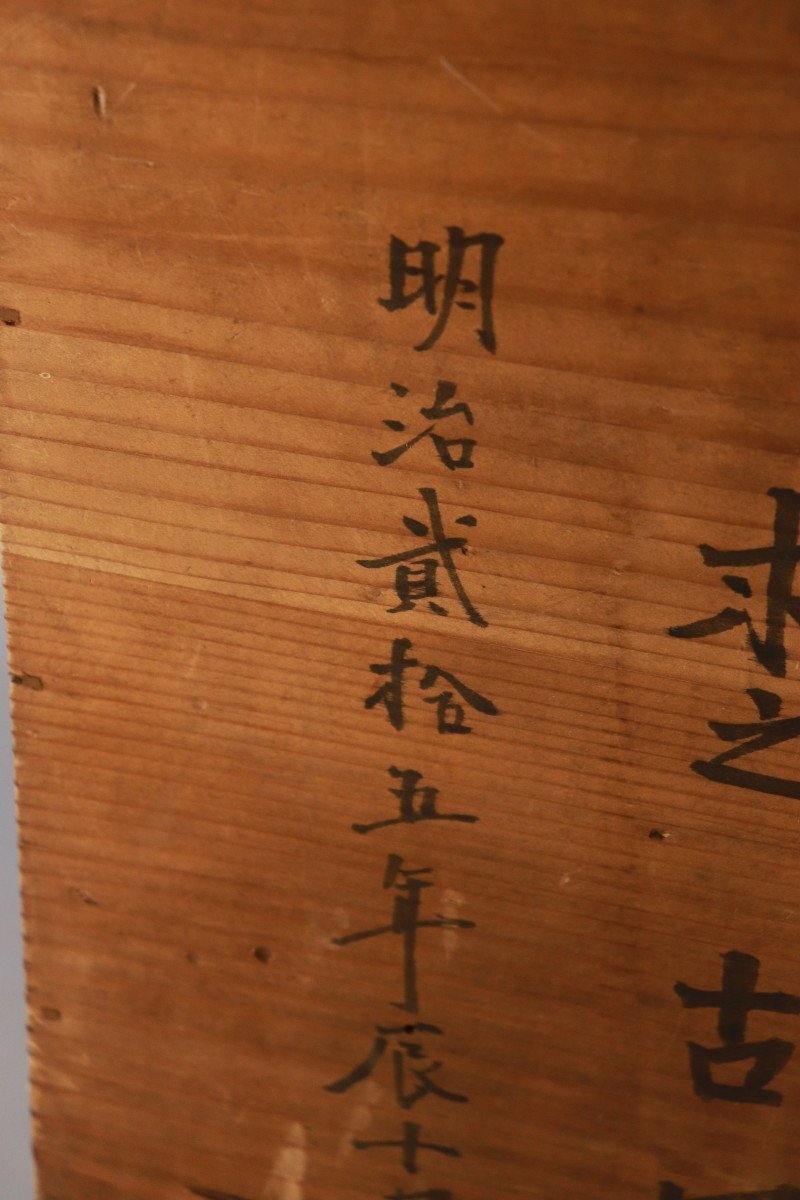 求之
古
明治貳拾五年辰十